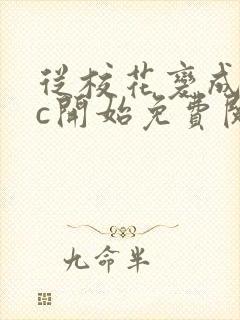 從校花變成
c開始免費閱
九命半